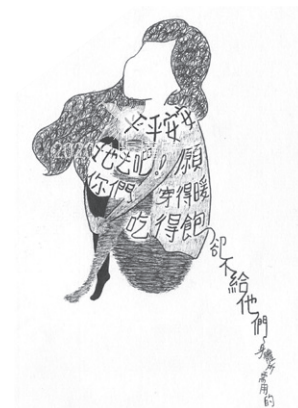 平平安安
地去吧!願
你們 穿得暖
吃得飽
卻不給他們
身體所需用的